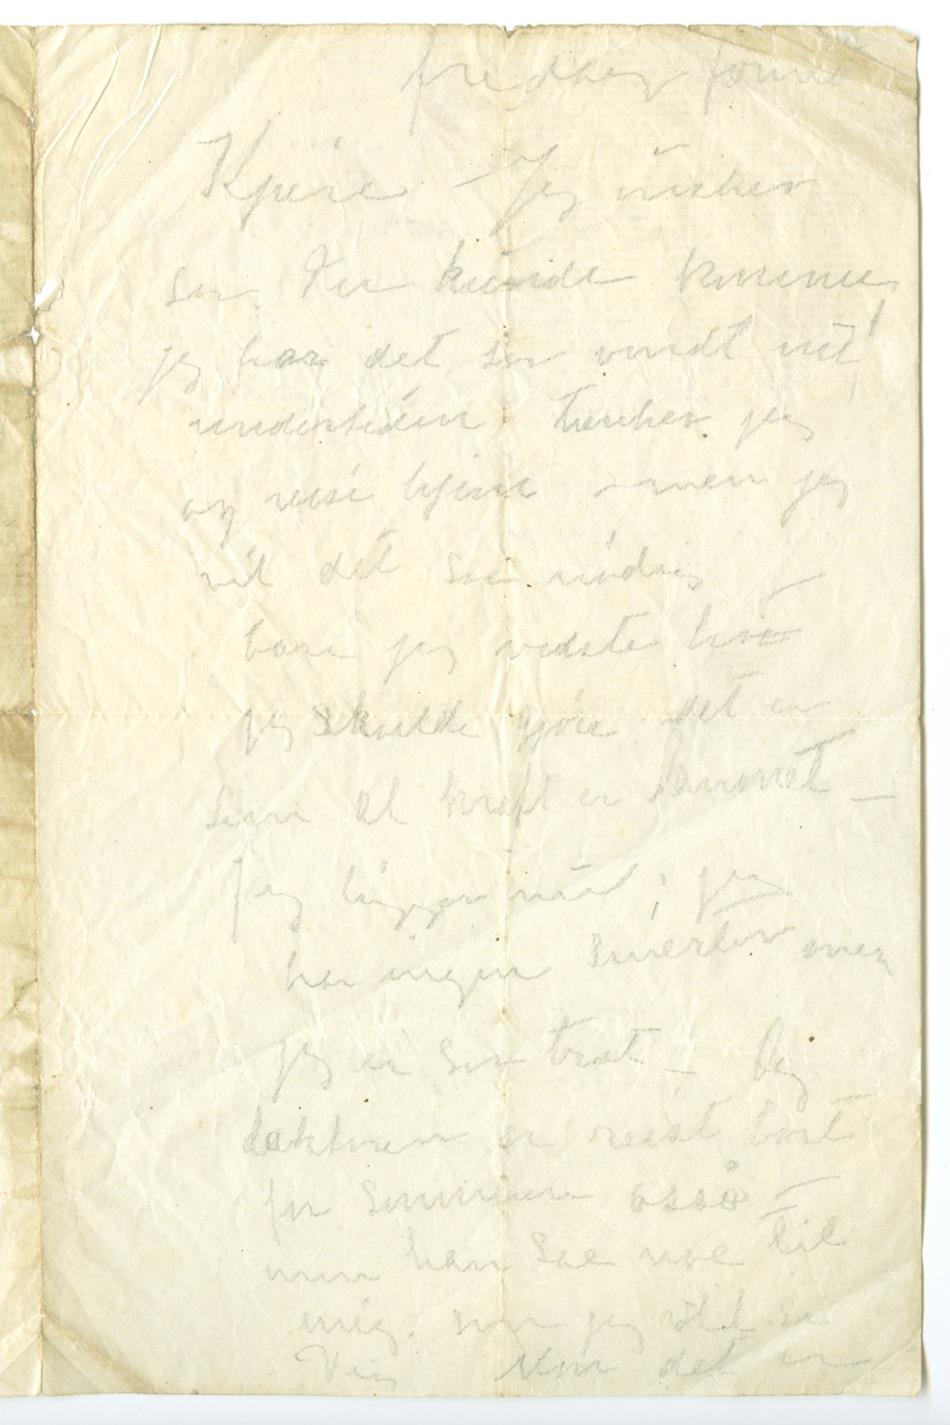 fredag form
Kjære – Jeg ønsker
saa Du kunde komme
jeg har det saa vondt nu!
undertiden tænker jeg
at reise hjem – men jeg
vil det saa nødig –
bare jeg vidste hva
jeg skulde gjøre det er
som al kraft er brunnet –
Jeg ligger nu; jeg
har ingen smerter men
jeg er saa træt – Og
doktoren er reist bort
for sommeren også –
men han sae noe til
mig som jeg vil si
Dig Um det er